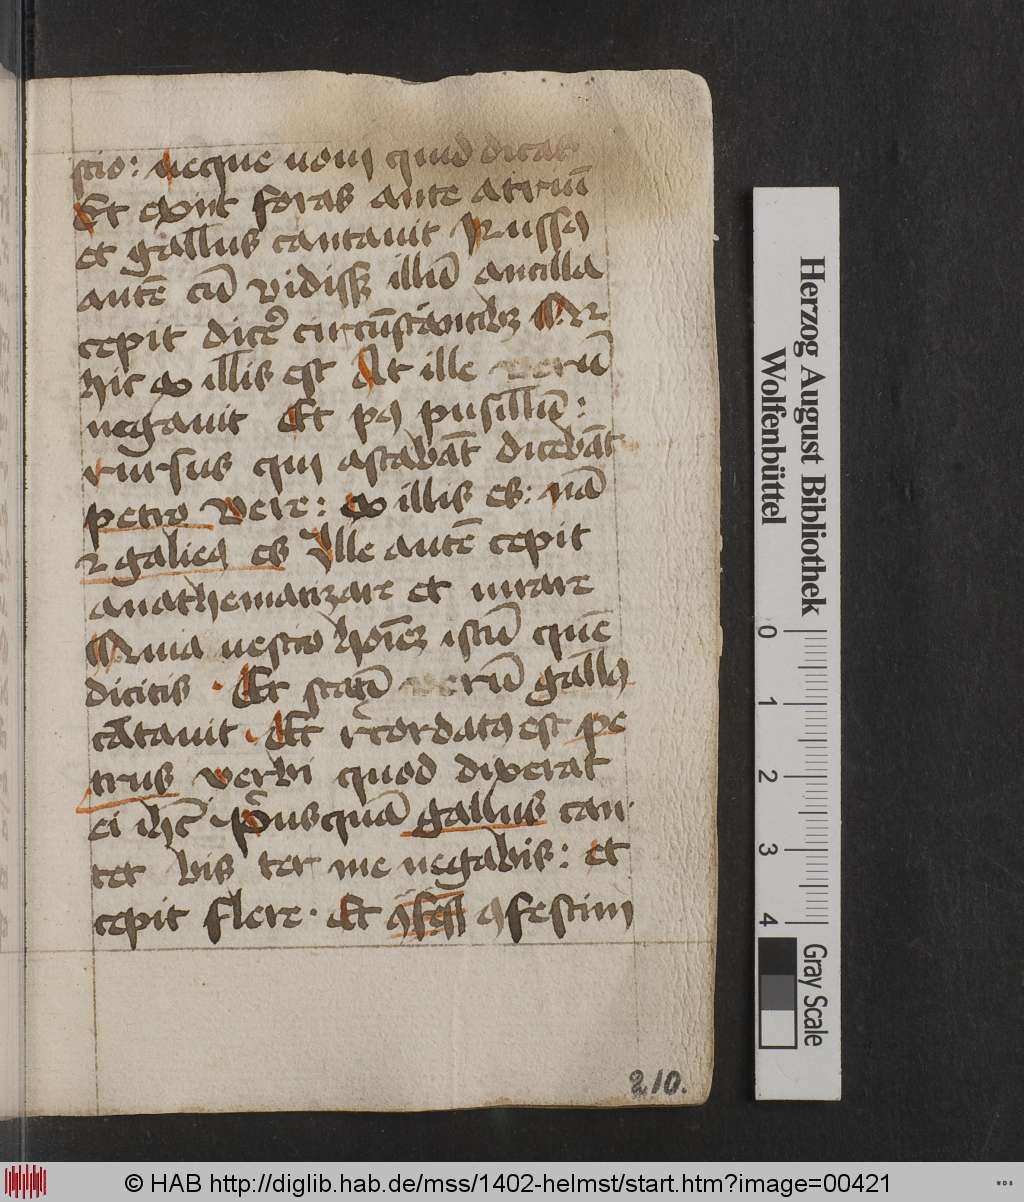 scio: neque noui quid dicas
Et exiit foras ante atriū
et gallus cantauit Russꝯ
autē cū vidissꝫ illū ancilla
cepit dicē circūstantibꝫ Qr
hic ex illis est At ille rū
negauit Et pꝯ pusillū:
rursus qui astabāt dicebāt
petro vere: ex illis es: nā
⁊ galileꝯ es Ille autē cepit
anathematizare et iurare
Quia nescio hoīeꝫ istū quē
dicitis · Et statī rū gallꝯ
cātauit · Et rcordatꝯ est pe
trus verbi quod dixerat
ei ihc̄ Pusquā gallus can
tet bis ter me negabis: et
cepit flere · Et ꝯfestim
210.
Herzog August Bibliothek
Wolfenbüttel
0 1 2 3 4
Gray Scale
© HAB http://diglib.hab.de/mss/1402-helmst/start.htm?image=00421